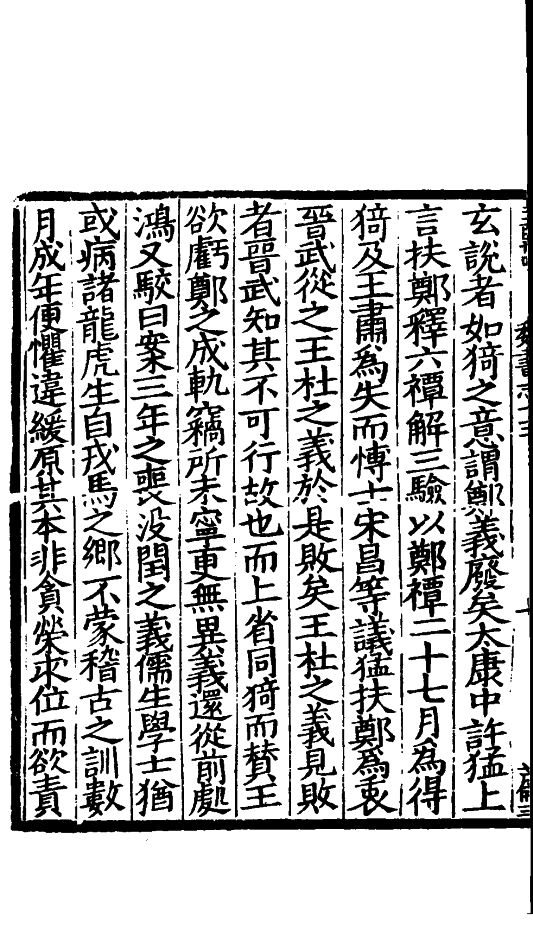 玄說者如猗之意謂鄭義廢矣太康中許猛上
言扶鄭釋六禫解三驗以鄭禫二十七月為得
猗及王肅為失而博士宋昌等議猛扶鄭為衷
晉武從之王杜之義於是敗矣王杜之義見敗
者晉武知其不可行故也而上省同猗而贊王
欲虧鄭之成軌竊所未寧更無異義還從前處
鴻又駮曰案三年之喪没閏之義儒生學士猶
或病諸龍虎生自戎馬之鄉不蒙稽古之訓數
月成年便懼違緩原其本非貪榮求位而欲責